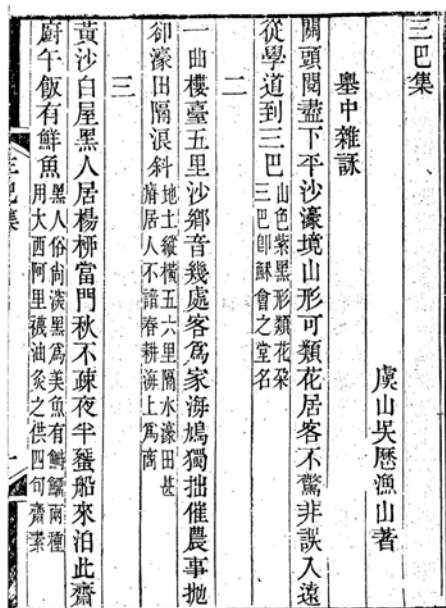 三巴集
虞山吳歷漁山著
㠀中雜詠
關頭閱盡下平沙濠境山形可類花居客不驚非誤入遠
從學道到三巴山色紫黑形類花朶
三巴卽穌會之堂名
二
一曲樓臺五里沙鄉音幾處客爲家海鳩獨拙催農事抛
卻濠田隔浪斜地土縱橫五六里隔水濠田甚
瘠居人不諳春耕海上爲商
三
黃沙白屋黑人居楊栁當門秋不疎夜半蜑船來泊此齋
廚午飯有鮮魚黑人俗尚深黑爲美魚有鰣鰳兩種
用大西阿里襪油炙之供四旬齋素
三巴集
一